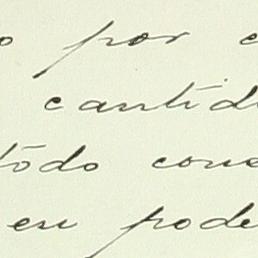 o por c
cantid
tôdo cone
en pode